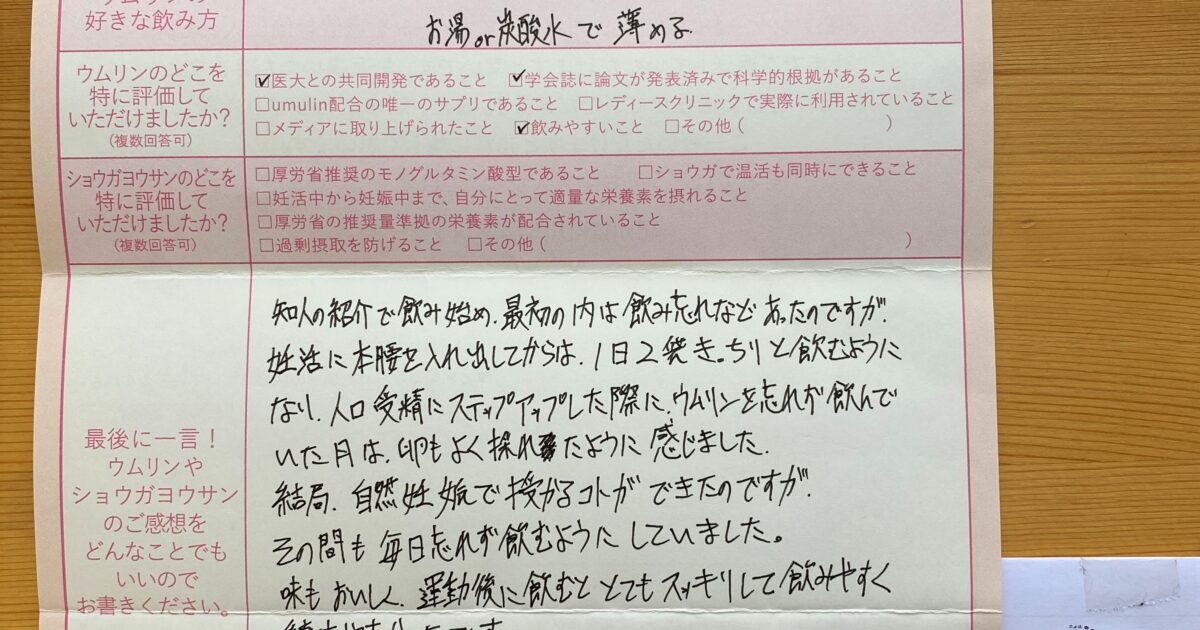 好きな飲み方
お湯or炭酸水で薄める
ウムリンのどこを
特に評価して
いただけましたか?
(複数回答可)
☑医大との共同開発であること ☑学会誌に論文が発表済みで科学的根拠があること
□umulin配合の唯一のサプリであること □レディースクリニックで実際に利用されていること
□メディアに取り上げられたこと ☑飲みやすいこと □その他( )
ショウガヨウサンのどこを
特に評価して
いただけましたか?
(複数回答可)
□厚労省推奨のモノグルタミン酸型であること □ショウガで温活も同時にできること
□妊活中から妊娠中まで、自分にとって適量な栄養素を摂れること
□厚労省の推奨量準拠の栄養素が配合されていること
□過剰摂取を防げること □その他( )
最後に一言!
ウムリンや
ショウガヨウサン
のご感想を
どんなことでも
いいので
お書きください。
知人の紹介で飲み始め、最初の内は飲み忘れなどあったのですが、
妊活に本腰を入れ出してからは、1日2袋きっちりと飲むように
なり、人口受精にステップアップした際に、ウムリンを忘れず飲んで
いた月は、卵もよく採れたように感じました。
結局、自然妊娠で授かるコトができたのですが、
その間も毎日忘れず飲むようにしていました。
味もおいしく、運動後に飲むととてもスッキリして飲みやすく